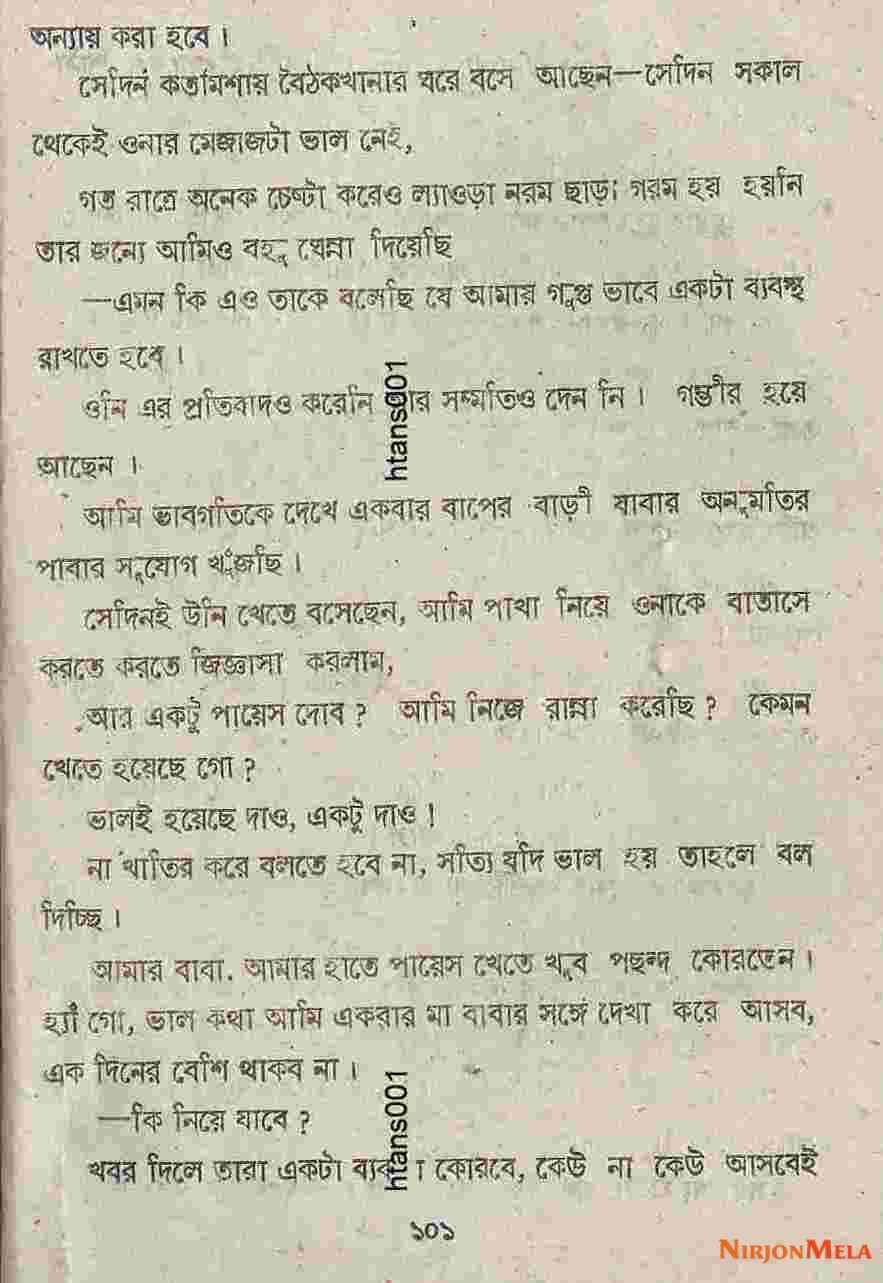 অন্যায় করা হবে ।
সেদিন কর্তামশায় বৈঠকখানার ঘরে বসে আছেন—সেদিন সকাল
থেকেই ওনার মেজাজটা ভাল নেই,
গত রাত্রে অনেক চেষ্টা করেও ল্যাওড়া নরম ছাড়া গরম হয় হয়নি
তার জন্যে আমিও বহু খেন্না দিয়েছি
—এমন কি এও তাকে বলেছি যে আমায় গুপ্ত ভাবে একটা ব্যবস্থ
রাখতে হবে ।
ওনি এর প্রতিবাদও করেনি আর সম্মতিও দেন নি । গম্ভীর হয়ে
htans001
আছেন ।
আমি ভাবগতিকে দেখে একবার বাপের বাড়ী যাবার অনুমতির
পাবার সুযোগ খুঁজছি ।
সেদিনই উনি খেতে বসেছেন, আমি পাখা নিয়ে ওনাকে বাতাসে
করতে করতে জিজ্ঞাসা করলাম,
আর একটু পায়েস দোব ? আমি নিজে রান্না করেছি ? কেমন
খেতে হয়েছে গো ?
ভালই হয়েছে দাও, একটু দাও !
না খাতির করে বলতে হবে না, সত্যি যদি ভাল হয় তাহলে বল
দিচ্ছি ।
আমার বাবা. আমার হাতে পায়েস খেতে খুব পছন্দ কোরতেন ।
হ্যাঁ গো, ভাল কথা আমি একরার মা বাবার সঙ্গে দেখা করে আসব,
এক দিনের বেশি থাকব না ।
—কি নিয়ে যাবে ?
খবর দিলে তারা একটা ব্যবস্থা কোরবে, কেউ না কেউ আসবেই
htans001
১০১
NIRJONMELA